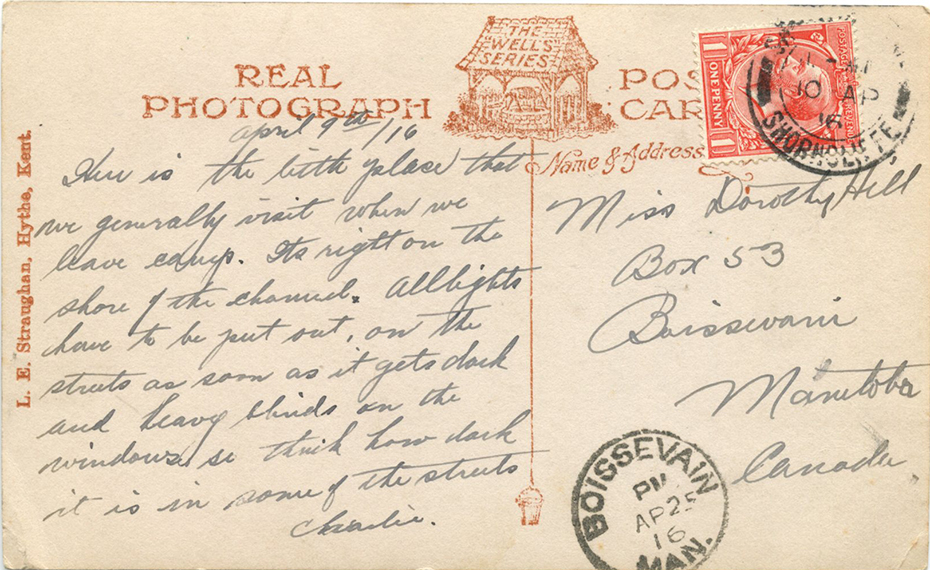 REAL
PHOTOGRAPH
THE
WELL'S
SERIES
POS
CAR
ONE PENNY
10 AP
16
SHORNCLIFFE
L. E. Straughan, Hythe, Kent.
April 9th/16
Here is the little place that
we generally visit when we
leave camp. Its right on the
shore of the channel. All lights
have to be put out, on the
streets as soon as it gets dark
and heavy blinds on the
windows so think how dark
it is in some of the streets
Charlie.
Name & Address
Miss Dorothy Hill
Box 53
Boissevain
Manitoba
Canada
BOISSEVAIN
PM
AP 25
16
MAN.